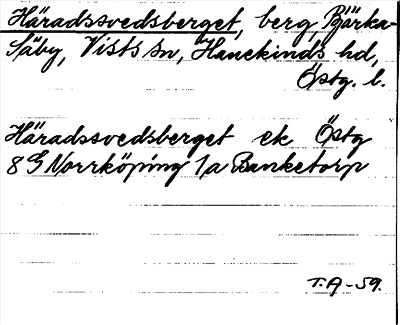 Häradssvedsberget, berg, Bjärka-
Säby, Vists sn, Hanekinds hd,
Östg. l.
Häradssvedsberget ek Östg
8 G Norrköping 1a Banketorp
T.A-59.